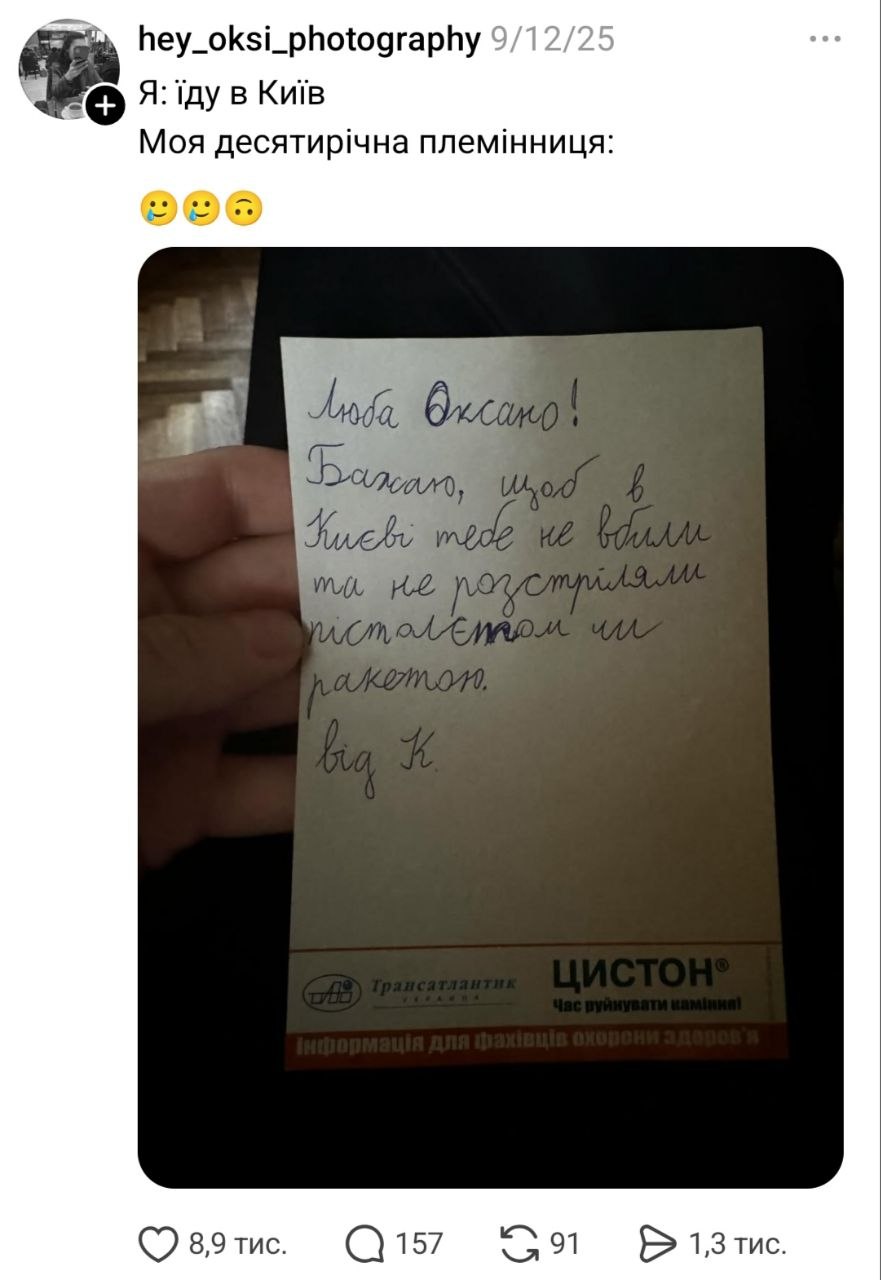 hey_oksi_photography 9/12/25
Я: їду в Київ
Моя десятирічна племінниця:
🥲🥲🙃
Люба Оксано!
Бажаю, щоб в
Києві тебе не вбили
та не розстріляли
пістолєтом чи
ракетою.
від К.
Трансатлантик
УКРАИНА
ЦИСТОН®
Час руйнувати каміння!
Інформація для фахівців охорони здоров'я
8,9 тис. 157 91 1,3 тис.